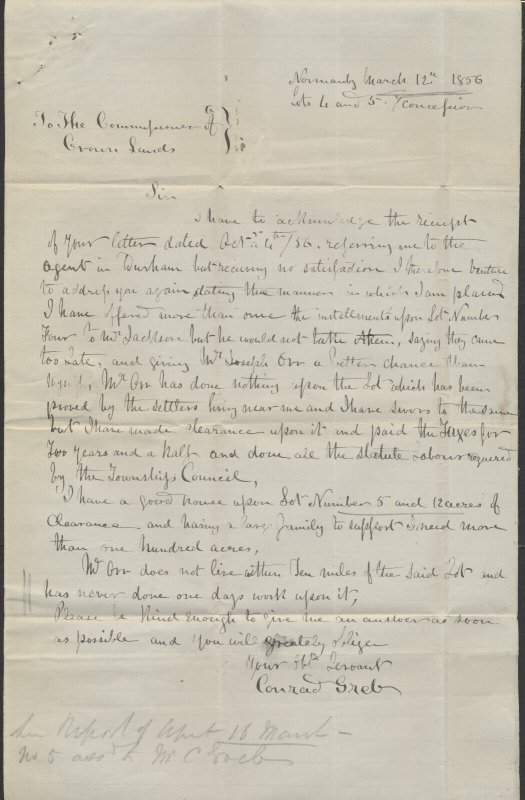 Normanby March 12th 1856
Lots 4 and 5. Concession
To The Commissioner of
Crown Lands
Sir
I have to acknowledge the receipt
of Your letter dated Oct 4th/56. referring me to the
agent in Durham but receiving no satisfaction I therefore venture
to address you again stating the manner in which I am placed
I have offered more than once the installments upon Lot Number
Four to Mr Jackson but he would not take them, saying they came
too Late, and giving Mr Joseph Orr a better chance than
Myself, Mr Orr has done nothing upon the Lot which has been
proved by the settlers living near me and I have sworn to the same
but I have made clearance upon it and paid the Taxes for
Two years and a half and done all the statute Labour required
by the Townships Council,
I have a good house upon Lot Number 5 and 12 acres of
Clearance and having a large family to support I need more
than one hundred acres,
Mr Orr does not live within Ten miles of the Said Lot and
has never done one days work upon it,
Please be Kind enough to give me an answer as soon
as possible and You will greatly oblige
Your Obt Servant
Conrad Greb
Report of Agent 16 March
No 5 assd to Mr C Greb